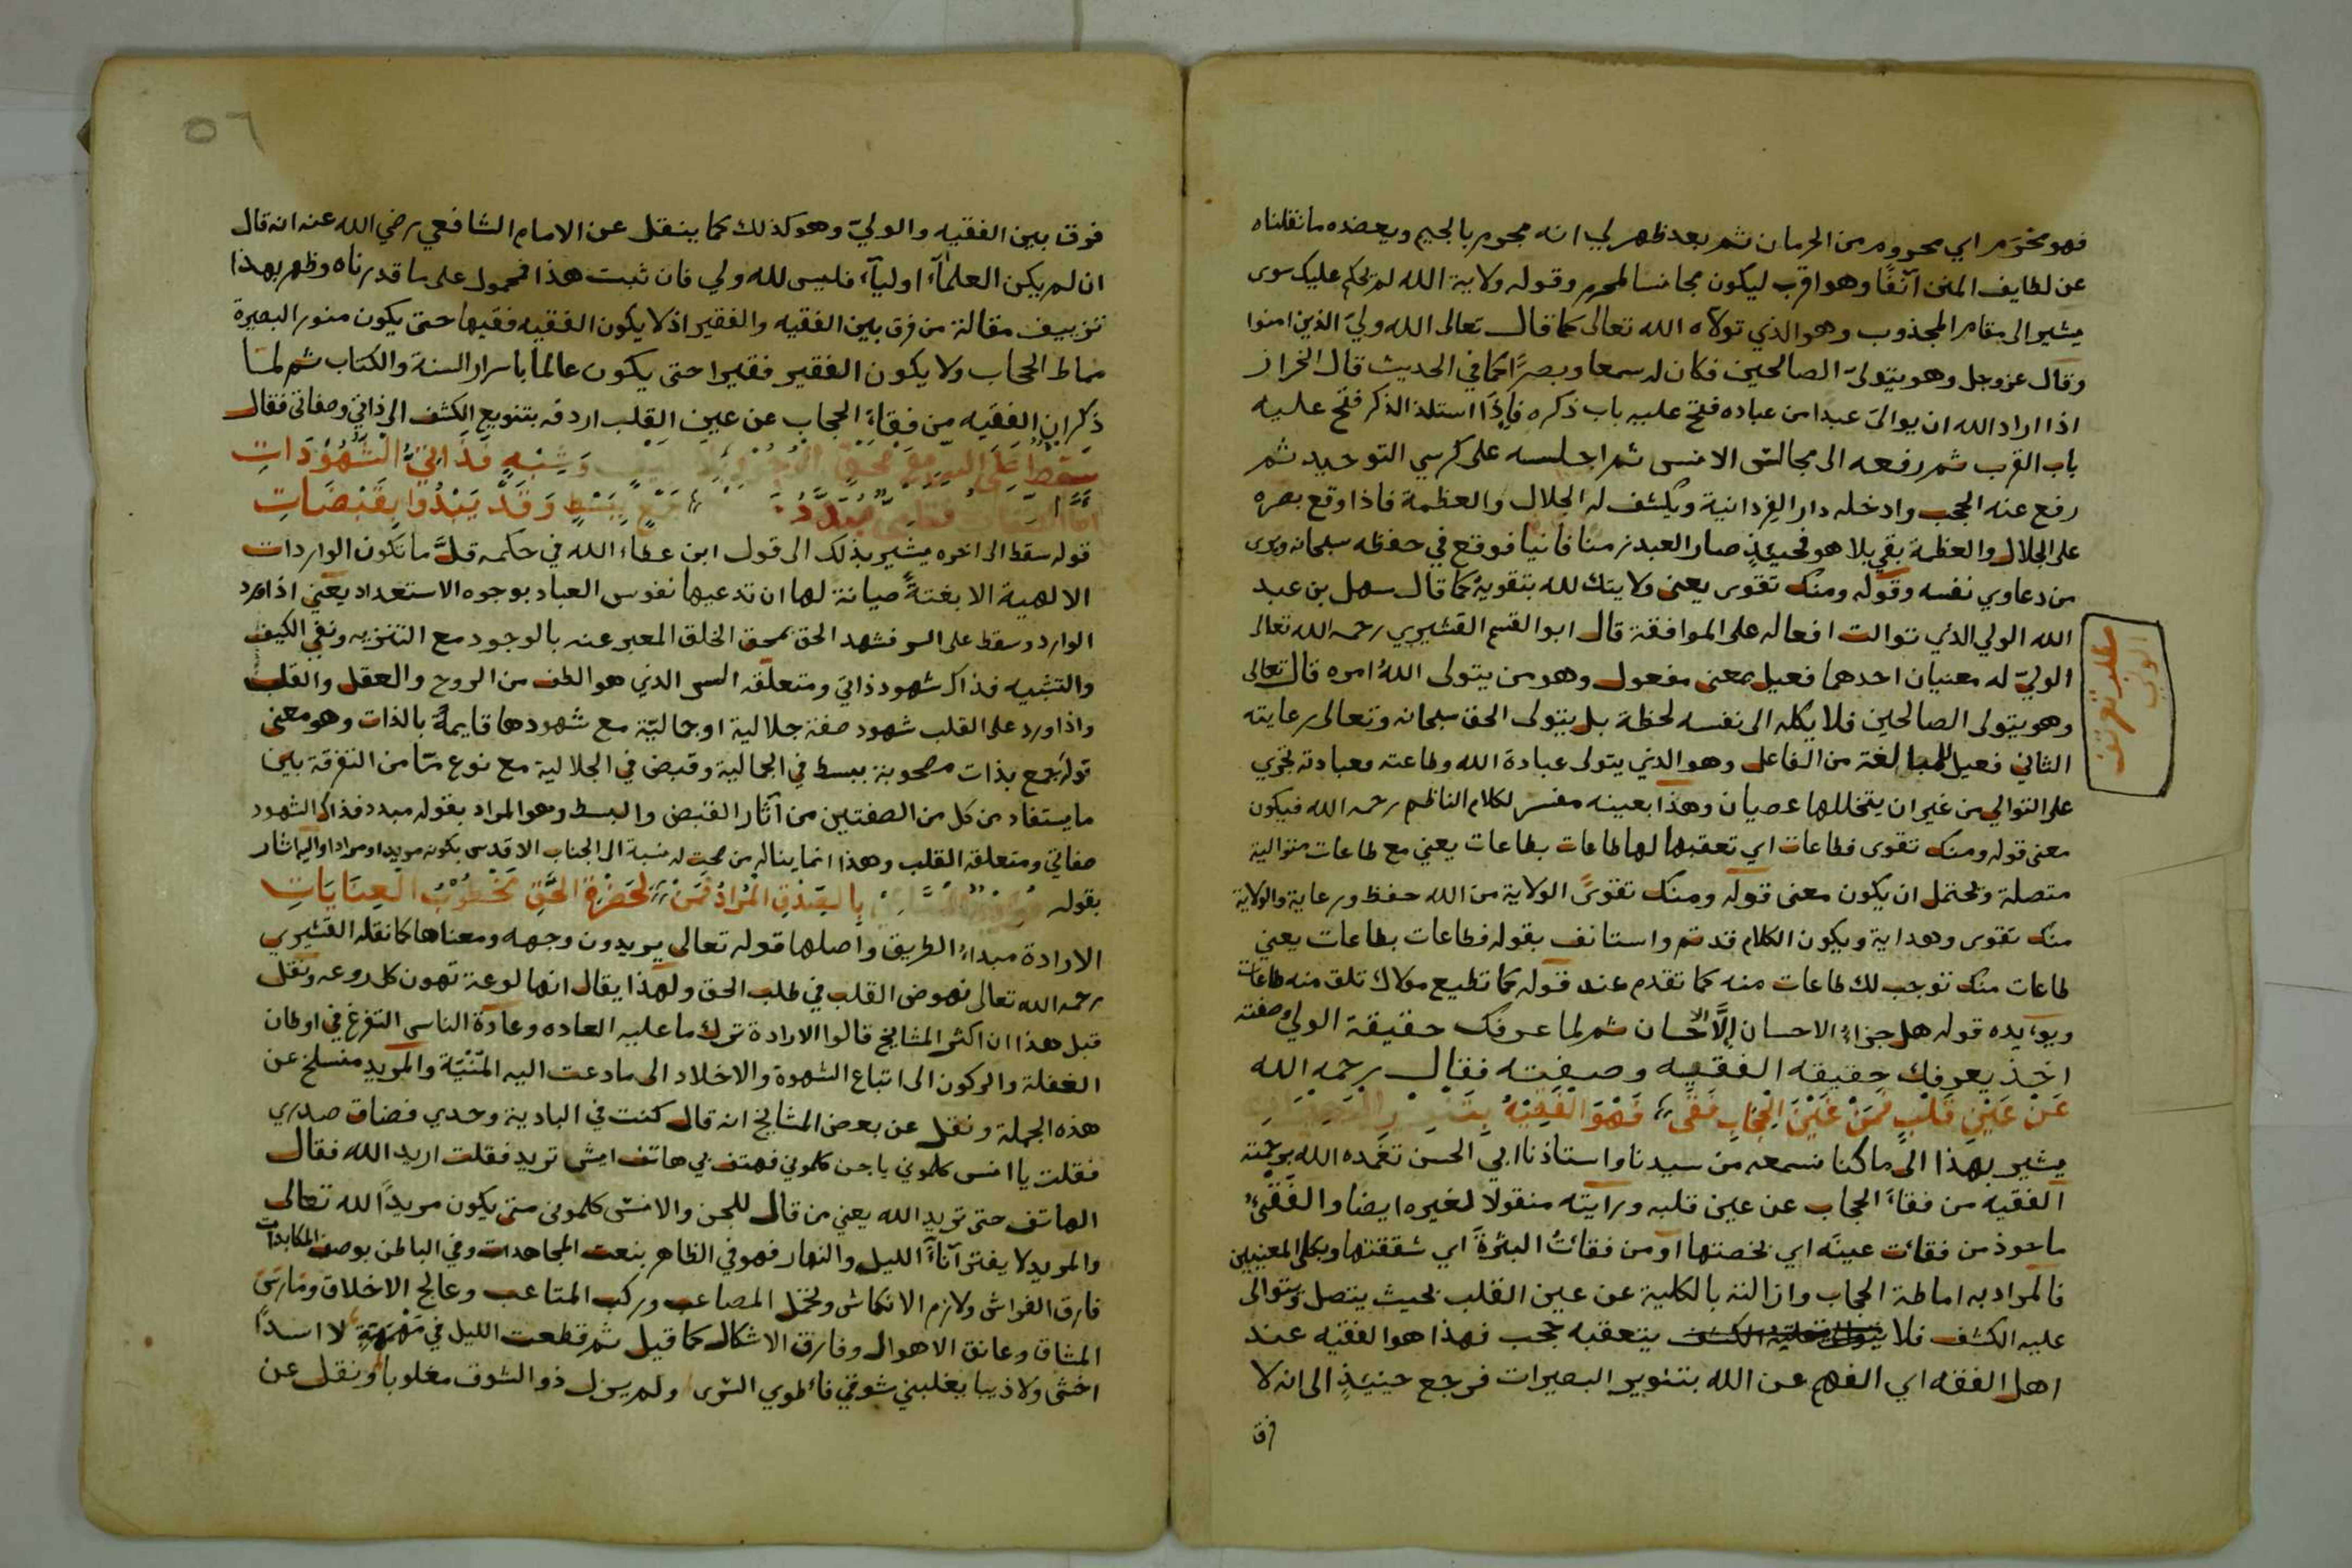 فهو مخوم اي محروم من الحرمان ثم بعد ظهر لي انه مجرم بالجيم ويعضده ما نقلناه
عن لطايف المنن آنفًا وهو اقرب ليكون مجانسا لمحرم وقوله ولاية الله لم تحكم عليك سوى
يشير الى مقام المجذوب وهو الذي تولاه الله تعالى كما قال تعالى الله ولي الذين امنوا
وقال عز وجل وهو يتولى الصالحين فكان له سمعا وبصرًا كما في الحديث قال الخراز
اذا اراد الله ان يوالي عبدا من عباده فتح عليه باب ذكره فاذا استلذ الذكر فتح عليه
باب القرب ثم رفعه الى مجالس الانس ثم اجلسه على كرسي التوحيد ثم
رفع عنه الحجب وادخله دار الفردانية ويكشف له الجلال والعظمة فاذا وقع بصره
على الجلال والعظمة بقي بلا هو فحينئذٍ صار العبد زمنا فانيا فوقع في حفظه سبحانه وبرى
من دعاوي نفسه وقوله ومنك تقوى يعني ولايتك لله بتقوية كما قال سهل بن عبد
الله الولي الذي توالت افعاله على الموافقة قال ابو القسم القشيري رحمه الله تعالى
مطلب تعريف
الولي
الوليّ له معنيان احدهما فعيل بمعنى مفعول وهو من يتولى اللهُ امره قال تعالى
وهو يتولى الصالحين فلا يكله الى نفسه لحظة بل يتولى الحق سبحانه وتعالى رعايته
الثاني فعيل للمبالغة من الفاعل وهو الذي يتولى عبادة الله وطاعته فعبادته تجري
على التوالي من غير ان يتخللها عصيان وهذا بعينه مفسر لكلام الناظم رحمه الله فيكون
معنى قوله ومنك تقوى فطاعات اي تعقبها لها طاعات بطاعات يعني مع طاعات متوالية
متصلة ويحتمل ان يكون معنى قوله ومنك تقوىً الولاية من الله حفظ ورعاية والولاية
منك تقوى وهداية ويكون الكلام قد تم واستانف بقوله فطاعات بطاعات يعني
طاعات منك توجب لك طاعات منه كما تقدم عند قوله كما تطيع مولاك تلق منه طاعات
ويوءيده قوله هل جزاء الاحسان إلّا الاحسان ثم لما عرفك حقيقة الولي وصفته
اخذ يعرفك حقيقه الفقيه وصفته فقال رحمه الله
عَنْ عَيْنِ قَلْبٍ فَمَنْ عَيْنَ الحِجَابِ فَقَى فَهْوَ الفَقِيْهُ
يشير بهذا الى ما كنا نسمعه من سيدنا واستاذنا ابي الحسن تغمده الله برحمته
الفقيه من فقاءَ الحجاب عن عين قلبه ورايته منقولا لغيره ايضا والفقئُ
ماحوذ من فقات عينَه اي بخصتها او من فقاتُ البثرةَ اي شققتها وبكلي المعنيين
فالمراد به اماطة الحجاب وازالته بالكلية عن عين القلب بحيث يتصل ويتوالى
عليه الكشف فلا يتعقبه حجب فهذا هو الفقيه عند
اهل الفقه اي الفهم عن الله بتنوير البصيرات فرجع حينئذٍ الى انه لا
فرق
٥٦
فرق بين الفقيه والوليّ وهو كذلك كما ينقل عن الامام الشافعي رضي الله عنه انه قال
ان لم يكن العلمآء اوليآء فليس لله ولي فان ثبت هذا فمحمول على ما قدرناه وظهر بهذا
تزييف مقالة من فرق بين الفقيه والفقير اذ لا يكون الفقيه فقيها حتى يكون منور البصيرة
مماط الحجاب ولا يكون الفقير فقيرا حتى يكون عالما باسرار السنة والكتاب ثم لما
ذكر ان الفقيه من فقاءَ الحجاب عن عين القلب اردفه بتنويع الكشف الى ذاتي وصفاتى فقال
سقط على السر مع محق الوجود وَشِبْهٍ فَذَاتِيُّ الشُّهُوْدَاتِ
اما الصفات بِبَسْطٍ وَقَدْ يَبْدُوا بِقَبْضَاتِ
قوله سقط الى اخره يشير بذلك الى قول ابن عطاء الله في حكمه قلَّ ما تكون الواردات
الالهية الا بغتةً صيانة لها ان تدعيها نفوس العباد بوجوه الاستعداد يعني اذا ورد
الوارد وسقط على السر فشهد الحق بمحق الخلق المعبر عنه بالوجود مع التنزيه ونفي الكيف
والتشبيه فذاك شهود ذاتي ومتعلقه السر الذي هو الطف من الروح والعقل والقلب
واذا ورد على القلب شهود صفة جلالية او جماليّة مع شهودها قايمةً بالذات وهو معنى
قوله بجمع بذات مصحوبة ببسط في الجمالية وقبض في الجلالية مع نوع مّا من التفرقة بين
ما يستفاد من كل من الصفتين من آثار القبض والبسط وهو المراد بقوله مبدد فذاك الشهود
صفاتي ومتعلقه القلب وهذا انما يناله من صحت له نسبة الى الجناب الاقدس بكونه مريدا ومرادا واليه اشار
بقوله بالصِّدْقِ الْمُرَادُ فَمَنْ لِحَضْرَةِ الحَقِّ مَخْطُوْبُ العِنَايَاتِ
الارادة مبداءُ الطريق واصلها قوله تعالى يريدون وجهه ومعناها كما نقله القشيري
رحمه الله تعالى نهوض القلب في طلب الحق ولهذا يقال انها لوعة تهون كل روعه ونقل
قبل هذا ان اكثر المشايخ قالوا الارادة ترك ما عليه العاده وعادة الناس التفرغ في اوطان
الغفلة والركون الى اتباع الشهوة والاخلاد الى ما دعت اليه المنيّة والمريد منسلخ عن
هذه الجملة ونقل عن بعض المشايخ انه قال كنت في البادية وحدي فضاق صدري
فقلت يا انس كلموني يا جن كلموني فهتف بي هاتف ايش تريد فقلت اريد الله فقال
الهاتف حتى تريد الله يعني من قال للجن والانس كلموني متى يكون مريدًا لله تعالى
والمريد لا يفتر آناءَ الليل والنهار فهو في الظاهر بنعت المجاهدات وفي الباطن بوصف المكابدات
فارق الفراش ولازم الانكماش وتحمّل المصاعب وركب المتاعب وعالج الاخلاق ومارس
المشاق وعانق الاهوال وفارق الاشكال كما قيل ثم قطعت الليل في مَهْمَهٍ لا اسدًا
اخشى ولا ذيبا يغلبني شوقي فاطوي السّرى ولم يزل ذو الشوق مغلوبا ونقل عن